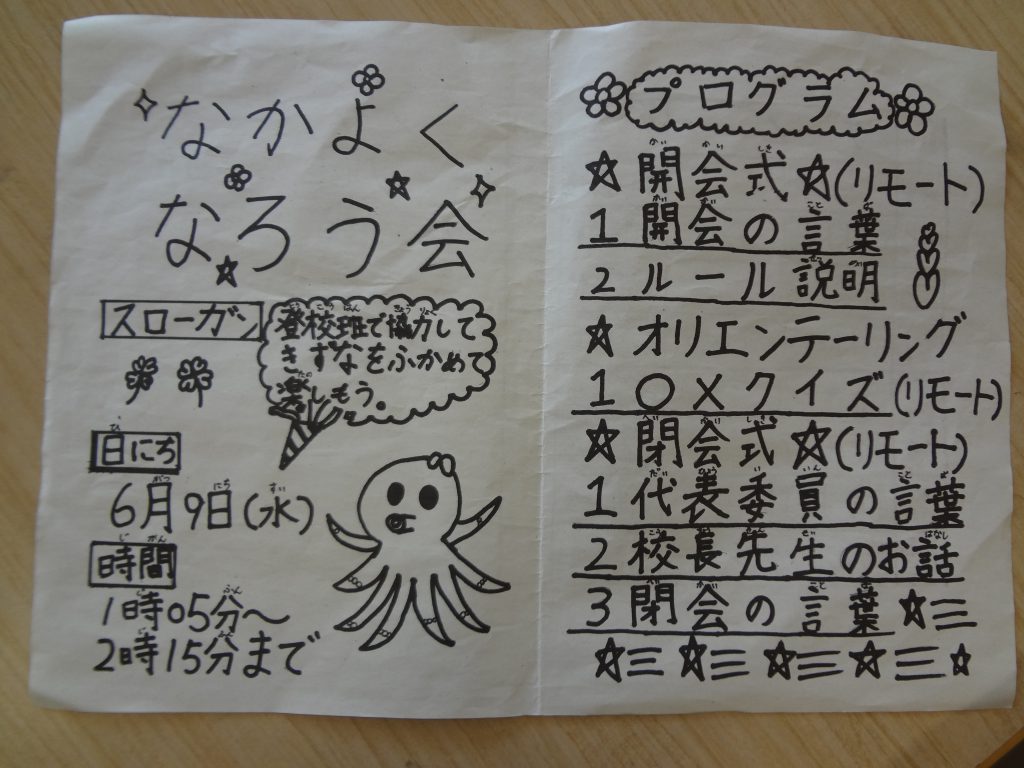 なかよく
なろう会
スローガン
登校班で協力して
きずなをふかめて
楽しもう。
日にち
6月9日(水)
時間
1時05分〜
2時15分まで
プログラム
☆開会式☆(リモート)
1 開会の言葉
2 ルール説明
☆オリエンテーリング
1 ○×クイズ(リモート)
☆閉会式☆(リモート)
1 代表委員の言葉
2 校長先生のお話
3 閉会の言葉